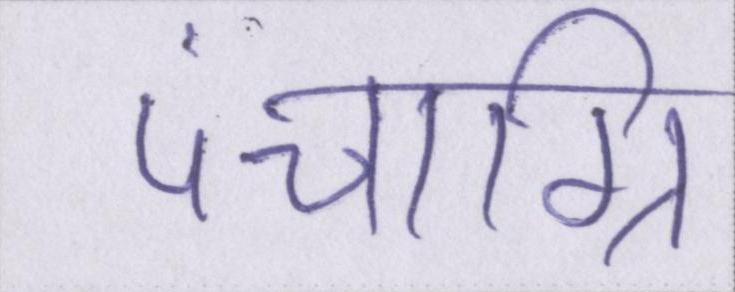 पंचाग्नि